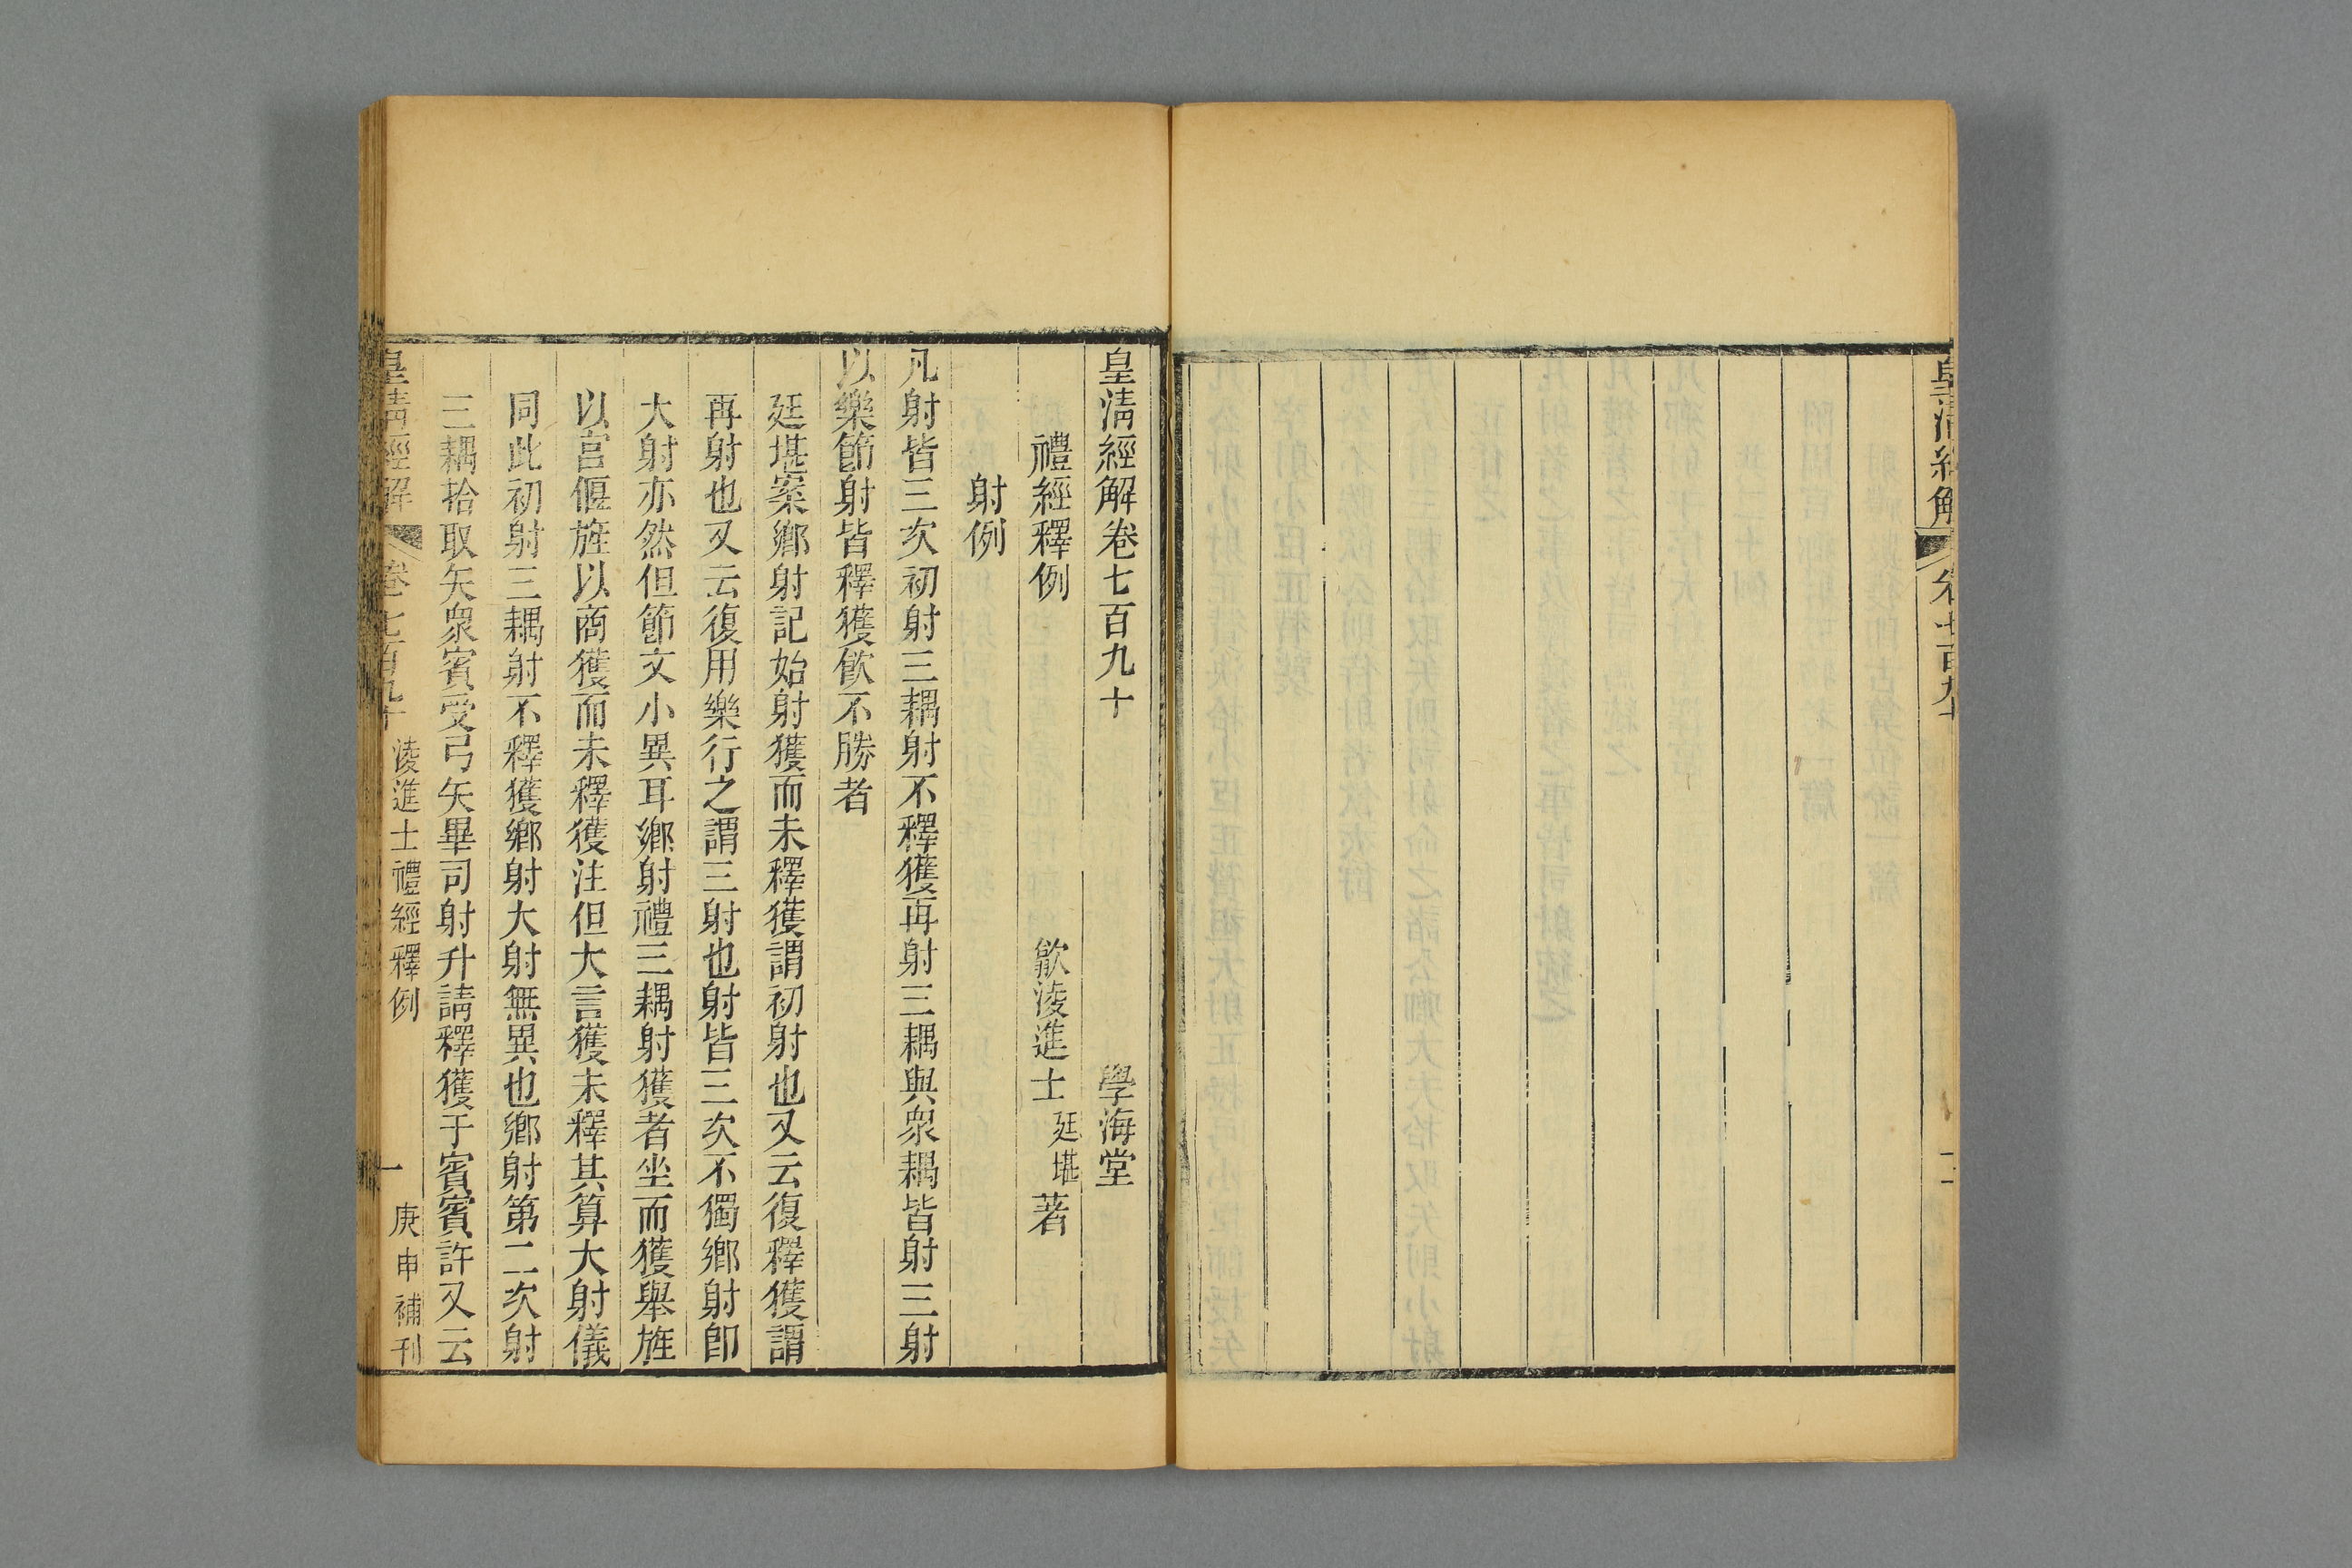 皇清經解
卷七百九十
二
皇清經解卷七百九十
學海堂
禮經釋例
歙淩進士廷堪著
射例
凡射皆三次初射三耦射不釋獲再射三耦與衆耦皆射三射
以樂節射皆釋獲飮不勝者
廷堪案鄉射記始射獲而未釋獲謂初射也又云復釋獲謂
再射也又云復用樂行之謂三射也射皆三次不獨鄉射卽
大射亦然但節文小異耳鄉射禮三耦射獲者坐而獲舉旌
以宮偃旌以商獲而未釋獲注但大言獲未釋其算大射儀
同此初射三耦射不釋獲鄉射大射無異也鄉射第二次射
三耦拾取矢衆賓受弓矢畢司射升請釋獲于賓賓許又云
皇清經解
卷七百九十
淩進士禮經釋例
一
庚申補刊